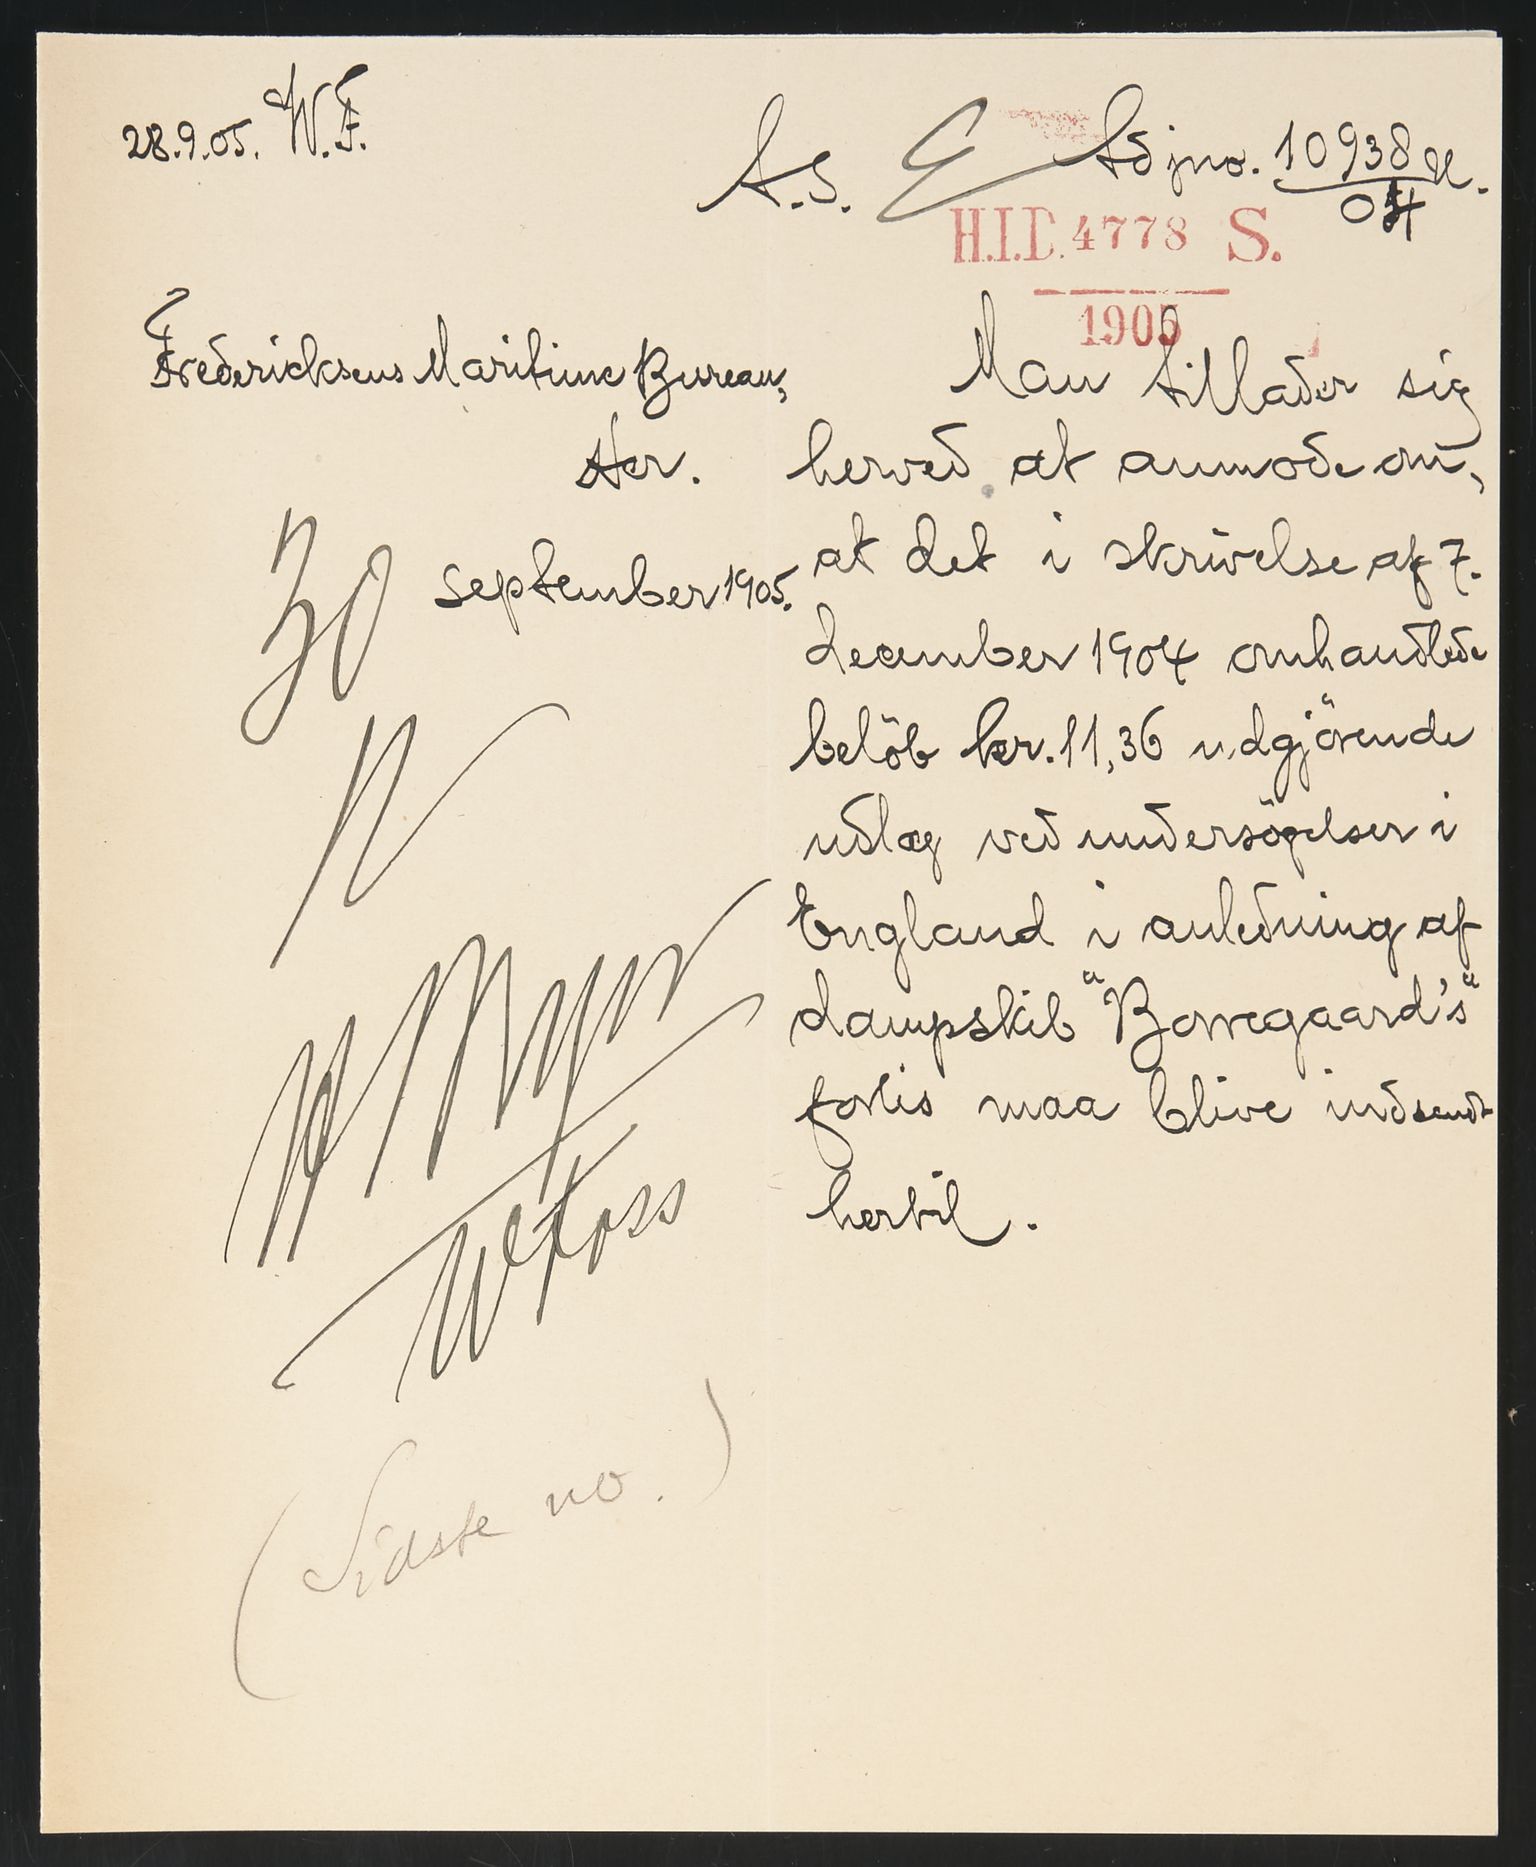 28.9.05. W.F.
A.S. Ad jno. 10938 U.
04
H.I.D. 4778 S.
1905
Fredericksens Maritime Bureau,
Her.
30 september 1905.
Man tillader sig
herved at anmode om,
at det i skrivelse af 7.
december 1904 omhandlede
belöb kr. 11,36 udgjörende
udlæg ved undersögelser i
England i anledning af
dampskib "Borregaard's"
forlis maa blive indsendt
hertil.
(Sidste no.)